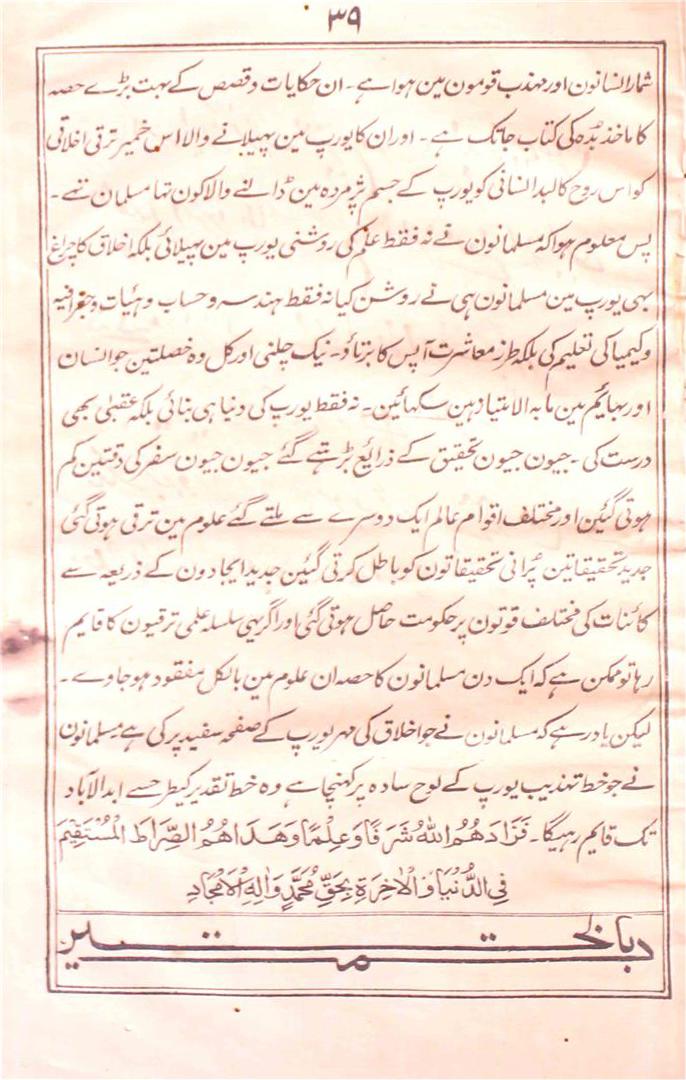 ۳۹
شمار انسانون اور مہذب قومون مین ہوا ہے۔ ان حکایات و قصص کے بہت بڑے حصہ
کا ماخذ بدہ کی کتاب جاتک ہے۔ اور ان کا یورپ مین پہیلانے والا اس خمیر ترقی اخلاقی
کو اس روح کالبد انسانی کو یورپ کے جسم پژمردہ مین ڈالنے والا کون تہا مسلمان تہے۔
پس معلوم ہوا کہ مسلمانون نے نہ فقط علم کی روشنی یورپ مین پہیلائی بلکہ اخلاق کا چراغ
بہی یورپ مین مسلمانون ہی نے روشن کیا نہ فقط ہندسہ و حساب و ہیات و جغرافیہ
و کیمیا کی تعلیم کی بلکہ طرز معاشرت آپس کا برتاؤ۔ نیک چلنی اور کل وہ خصلتین جو انسان
اور بہایم مین مابہ الامتیاز ہین سکہائین۔ نہ فقط یورپ کی دنیا ہی بنائی بلکہ عقبیٰ بھی
درست کی۔ جیون جیون تحقیق کے ذرائع بڑہتے گئے جیون جیون سفر کی دقتین کم
ہوتی گئین اور مختلف اقوام عالم ایک دوسرے سے ملتے گئے علوم مین ترقی ہوتی گئی
جدید تحقیقاتین پرانی تحقیقاتون کو باطل کرتی گئین جدید ایجادون کے ذریعہ سے
کائنات کی مختلف قوتون پر حکومت حاصل ہوتی گئی اور اگر یہی سلسلہ علمی ترقیون کا قایم
رہا تو ممکن ہے کہ ایک دن مسلمانون کا حصہ ان علوم مین بالکل مفقود ہو جاوے۔
لیکن یاد رہے کہ مسلمانون نے جو اخلاق کی مہر یورپ کے صفحہ سفید پر کی ہے مسلمانون
نے جو خط تہذیب یورپ کے لوح سادہ پر کہنچا ہے وہ خط تقدیر کیطرحسے ابدالآباد
تک قایم رہیگا۔ فَزَادَهُمُ اللّٰهُ شَرَفًا وَعِلْمًا وَهَدَاهُمُ الصِّرَاطَ الْمُسْتَقِيْمَ
فِی الدُّنْيَا وَالْاٰخِرَةِ بِحَقِّ مُحَمَّدٍ وَاٰلِهِ الْاَمْجَادِ
تمت بالخیر